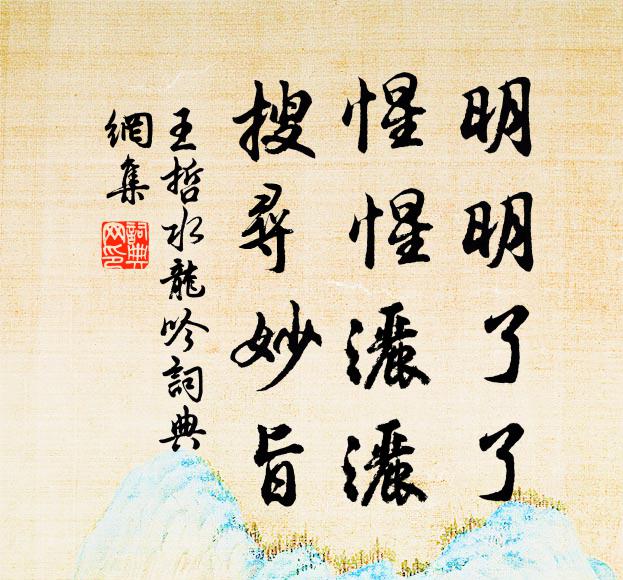 明明了了
惺惺灑灑
搜尋妙旨
王哲水龍吟詞典
網集
詞典
网印